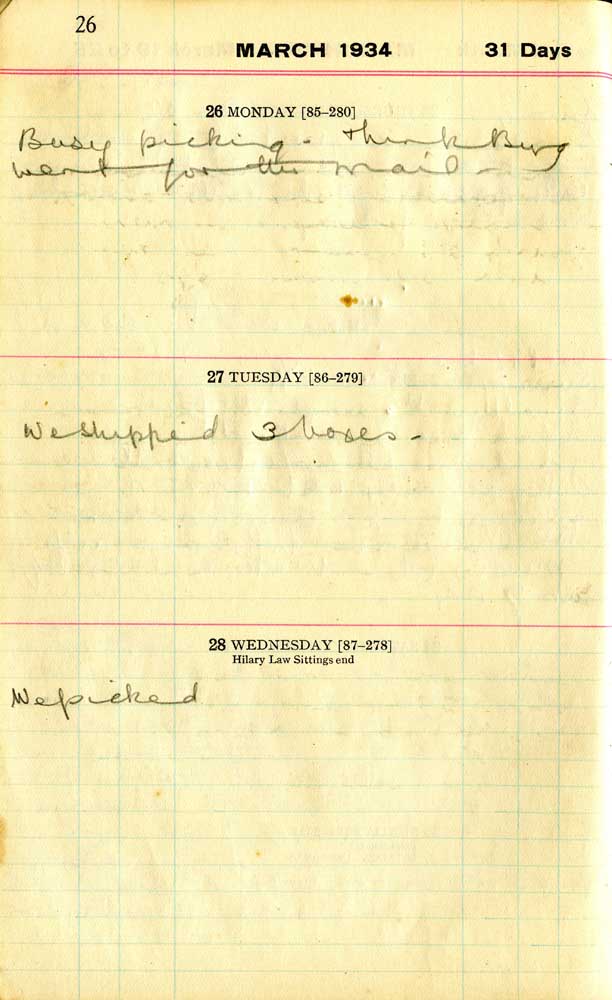 26
MARCH 1934 31 Days
26 MONDAY [85–280]
Busy picking - think Burg
went for the mail -
27 TUESDAY [86–279]
We shipped 3 boxes -
28 WEDNESDAY [87–278]
Hilary Law Sittings end
We picked